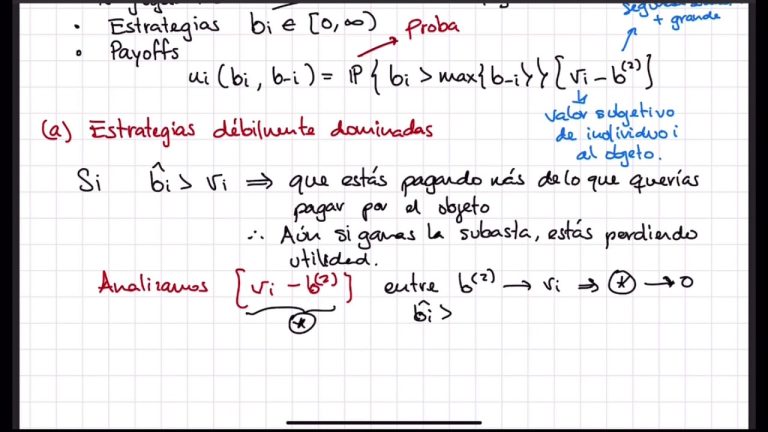 segunda
+ grande
• Estrategias bᵢ ∈ [0, ∞)
Proba
• Payoffs
uᵢ(bᵢ, b₋ᵢ) = ℙ{bᵢ > max{b₋ᵢ}}[vᵢ − b⁽²⁾]
valor subjetivo
de individuo i
al objeto.
(a) Estrategias débilmente dominadas
Si b̂ᵢ > vᵢ ⟹ que estás pagando más de lo que querías
pagar por el objeto
∴ Aún si ganas la subasta, estás perdiendo
utilidad.
Analizamos [vᵢ − b⁽²⁾] entre b⁽²⁾ → vᵢ ⇒ ⊛ → 0
⊛ b̂ᵢ >